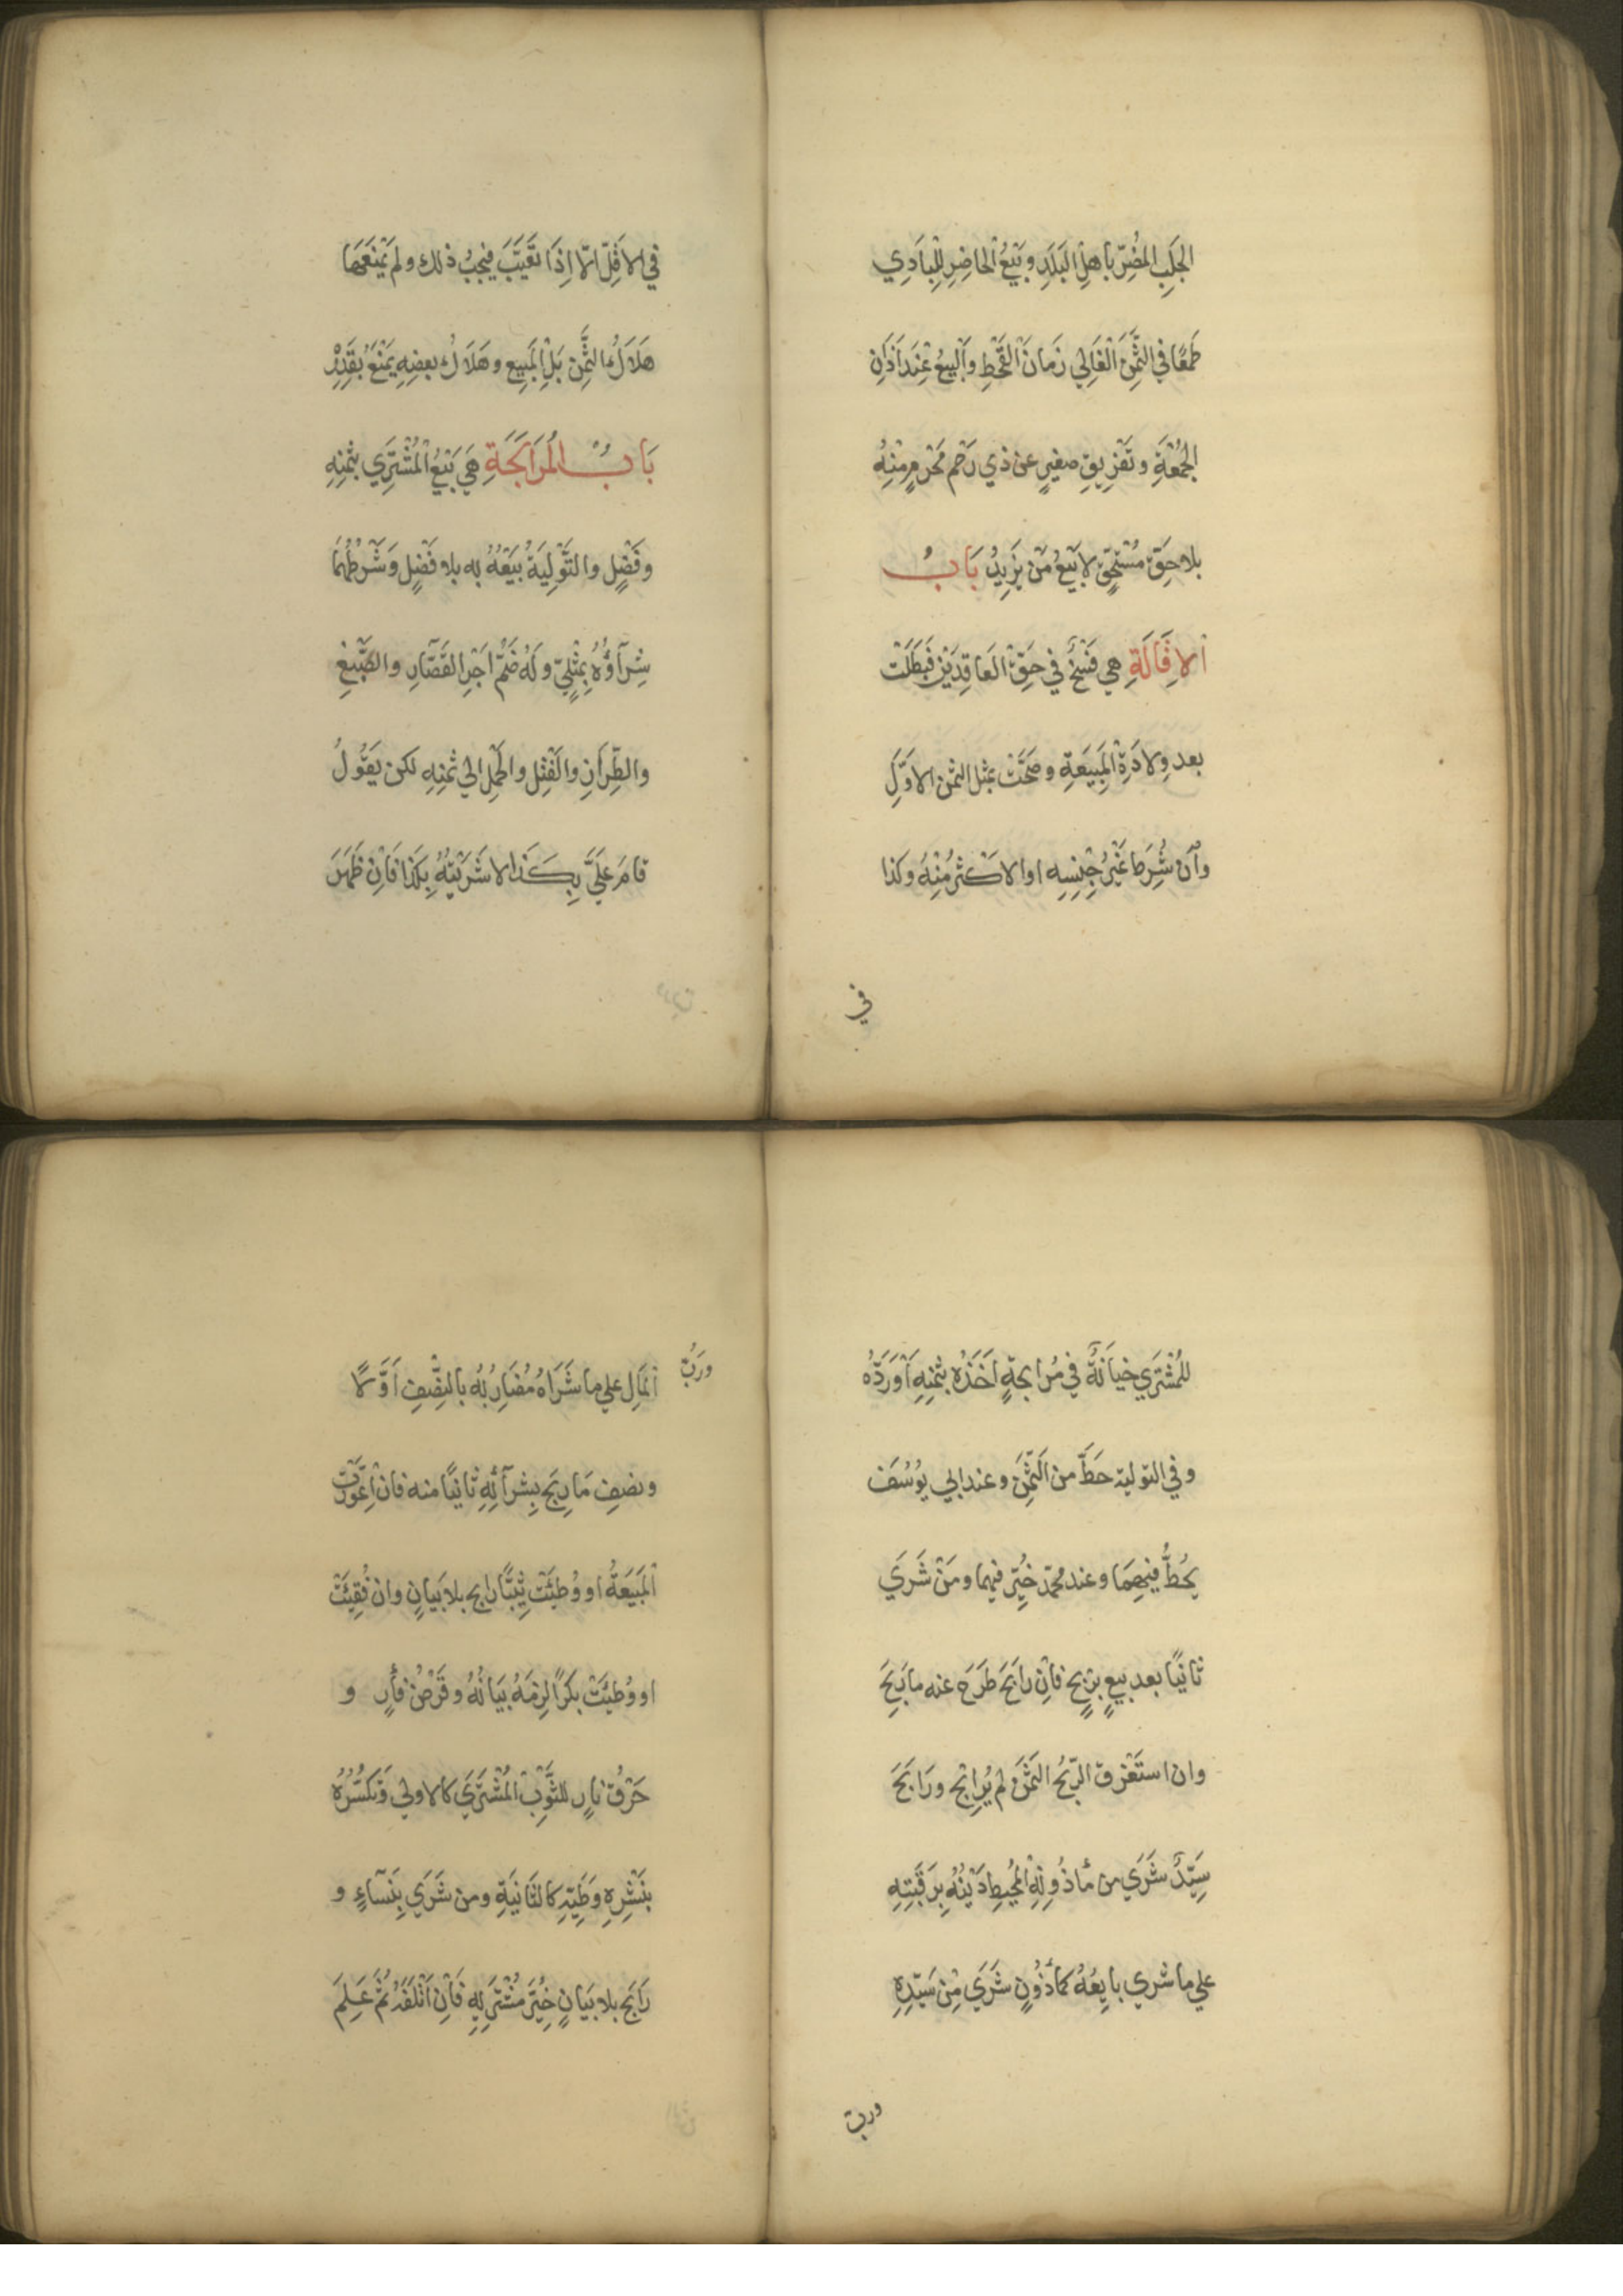 الجَلَبِ المُضِرّ بأهلِ البَلَدِ وبَيْعُ الحَاضِرِ لِلْبَادِي
طَمَعًا في الثَّمَنِ الْغَالِي زَمَانَ الْقَحْطِ وَالْبَيعُ عِنْدَ اَذَانِ
الجُمْعَةِ وتَفْرِيقِ صغيرٍ عن ذي رَحْمٍ مَحْرَمٍ مِنْهُ
بلا حَقّ مُسْتَحَقٍّ لا بَيْعُ مَنْ يَزِيدُ بَابُ
الاِقَالَةِ هي فَسْخٌ في حَقّ العَاقِدَيْنِ فَبَطَلَتْ
بعد وِلادَةِ الْمَبِيعَةِ وصَحَّتْ بمثل الثمن الاوَّلِ
وَاِنْ شُرِطَ غَيْرُ جِنْسِهِ او الاكثرُ مِنْهُ وكذا
في
في الاَقَلِّ اِلّا اِذَا تَعَيَّبَ فيَجِبُ ذلك ولم يَمْنَعْهَا
هَلَاكُ الثَّمَنِ بَلِ الْمَبِيعِ وهَلَاكُ بعضِهِ يَمْنَعُ بِقَدْرِهِ
بَابُ المُرَابَحَةِ هِيَ بَيْعُ الْمُشْتَرِي بثَمَنِهِ
وفَضْلٍ والتَّوْلِيَةُ بَيْعُهُ بِهِ بلا فَضْلٍ وَشَرْطُهُمَا
شِرَآؤُهُ بِمِثْلِيٍّ وَلَهُ ضَمُّ اَجْرِ القَصَّارِ والصَّبْغِ
والطِّرَازِ والْفَتْلِ والحَمْلِ الي ثمنِهِ لكن يَقُولُ
قامَ عَلَيَّ بِكَذَا لا شَرَيْتُهُ بِكَذَا فَاِنْ ظَهَرَ
للمُشْتَرِي خِيَانَةٌ في مُرابحةٍ اَخَذَهُ بثَمَنِهِ اَوْ رَدَّهُ
وفي التولية حَطَّ من الثَّمَنِ وعند ابي يُوسُفَ
يَحُطُّ فيهِمَا وعند محمّد خُيِّرَ فيهما ومَنْ شَرَي
ثانيًا بعد بيعٍ بِرِبْحٍ فاِنْ رَابَحَ طَرَحَ عنه ما رَبِحَ
وان استَغْرق الرِّبْحُ الثَّمَنَ لم يُرابِح ورَابَحَ
سَيِّدٌ شَرَي من مأذُونِهِ الْمُحِيطِ دَيْنُهُ بِرَقَبَتِهِ
علي ما شري بايِعُهُ كمأذُونٍ شَرَي مِنْ سَيِّدِهِ
ورب
ورَبُّ
الْمَالِ علي ما شَرَاهُ مُضَارِبُهُ بالنِّصْفِ اَوَّلًا
ونصفِ مَا رِبَح بِشرآئِهِ ثانيًا منه فان اعْوَرَّتْ
الْمَبِيعَةُ او وُطِئَتْ ثَيِّبًا رابح بلا بَيانٍ وان فُقِئَتْ
او وُطِئَتْ بكرًا لَزِمَهُ بَيَانُهُ وقَرْضُ فَأْرٍ و
حَرْقُ نارٍ للثَّوْبِ الْمُشْتَرَي كالاولي وَتَكَسُّرُهُ
بِنَشْرِهِ وَطَيِّهِ كالثَّانِيَةِ ومن شَرَي بِنَسآءٍ و
رَابَح بلا بَيَانٍ خُيِّرَ مُشْتَرِيهِ فَاِنْ اَتْلَفَهُ ثُمَّ عَلِمَ